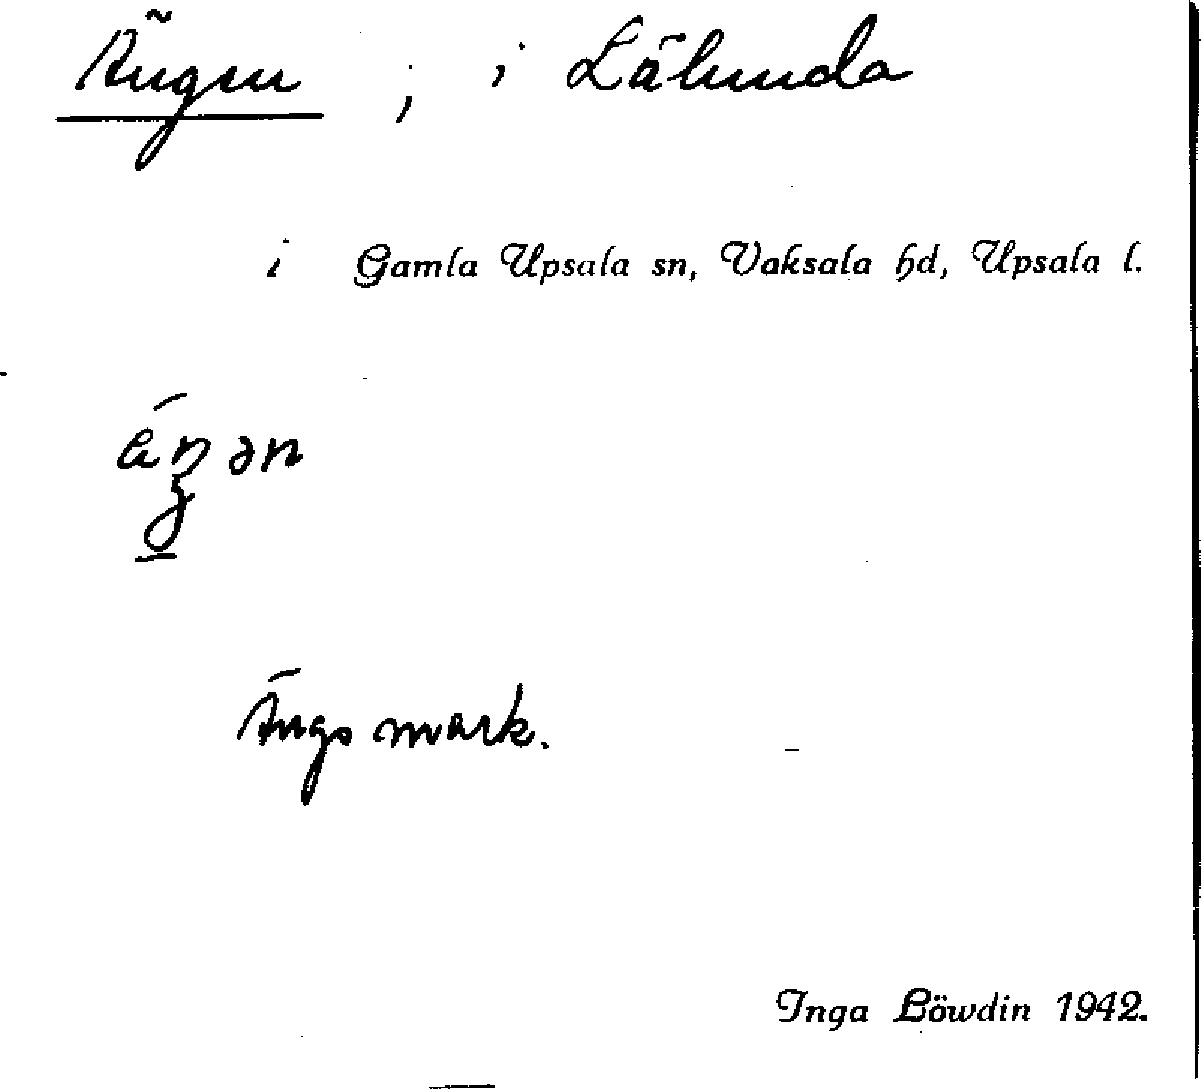 Ängen ; i Lålunda
i Gamla Upsala sn, Vaksala hd, Upsala l.
Ängsmark.
Inga Löwdin 1942.